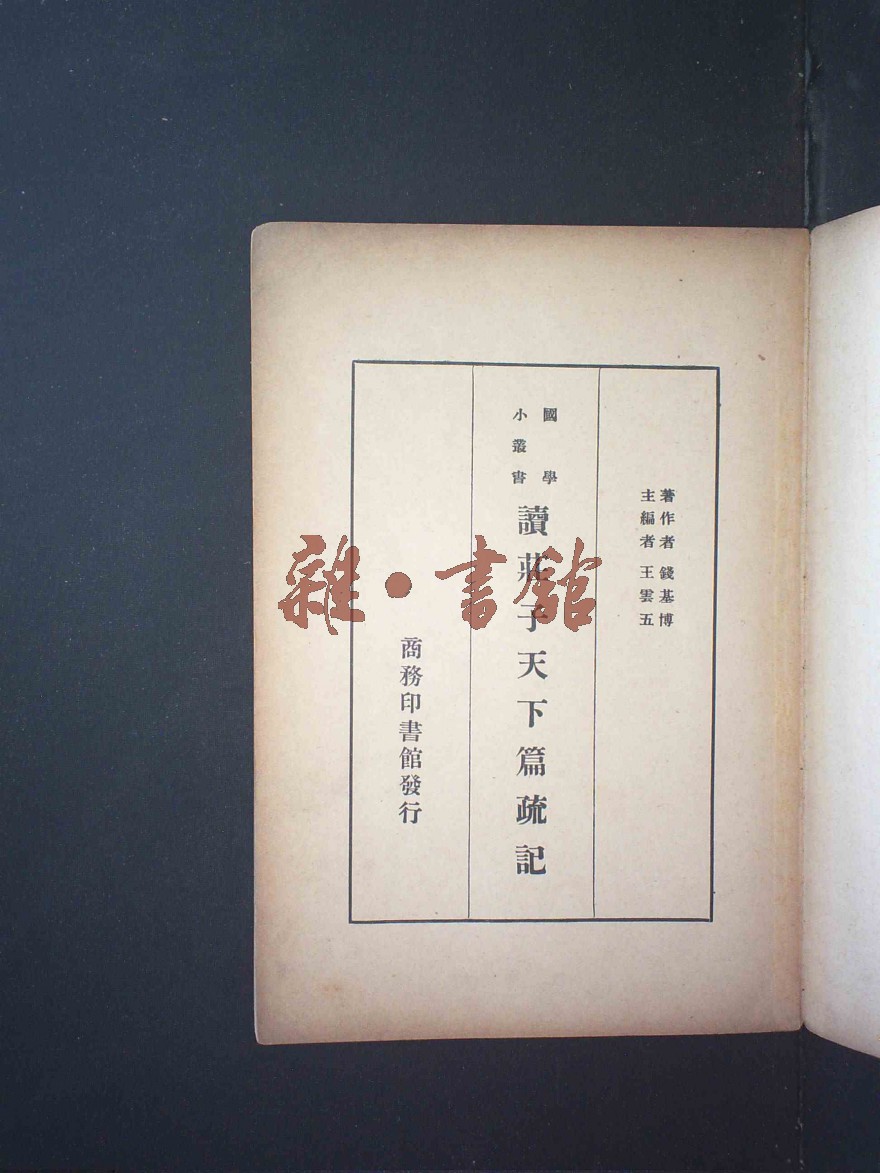 著作者 錢基博
主編者 王雲五
國學
小叢書
讀莊子天下篇疏記
商務印書館發行
雜·書館